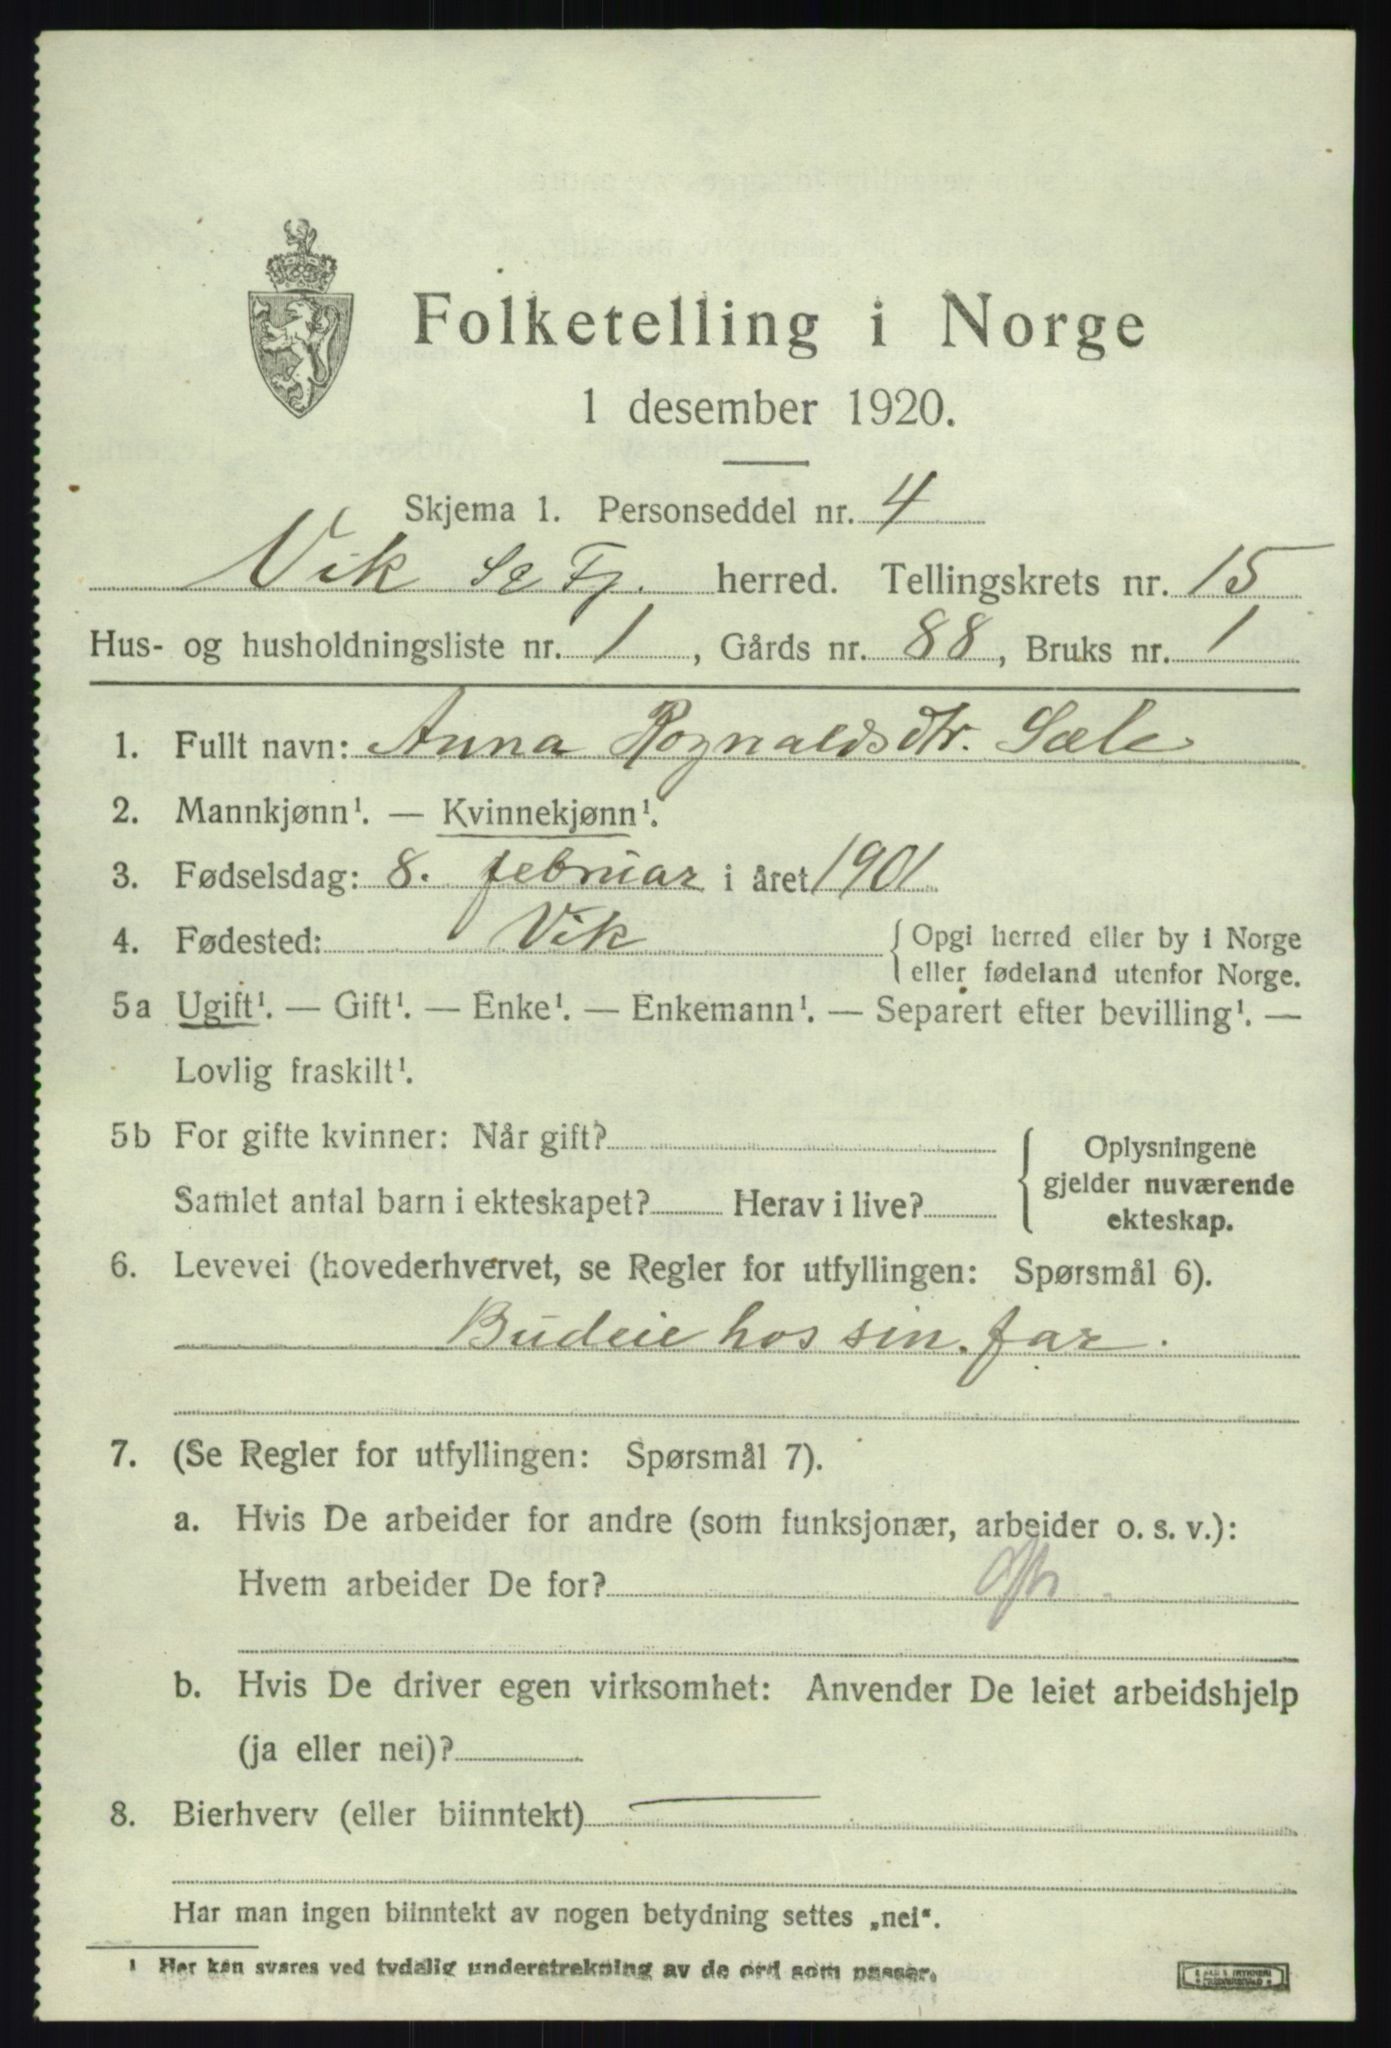 Folketelling i Norge
1 desember 1920.
Skjema 1. Personseddel nr. 4
Vik S & Fj. herred. Tellingskrets nr. 15
Hus- og husholdningsliste nr. 1, Gårds nr. 88, Bruks nr. 1
1. Fullt navn: Anna Rognaldsdtr. Sæle
2. Mannkjønn¹. — Kvinnekjønn¹.
3. Fødselsdag: 8. februar i året 1901
4. Fødested: Vik { Opgi herred eller by i Norge
eller fødeland utenfor Norge.
5a Ugift¹. — Gift¹. — Enke¹. — Enkemann¹. — Separert efter bevilling¹. —
Lovlig fraskilt¹.
5b For gifte kvinner: Når gift?
Samlet antal barn i ekteskapet? Herav i live?
{ Oplysningene
gjelder nuværende
ekteskap.
6. Levevei (hovederhvervet, se Regler for utfyllingen: Spørsmål 6).
Budeie hos sin far.
7. (Se Regler for utfyllingen: Spørsmål 7).
a. Hvis De arbeider for andre (som funksjonær, arbeider o. s. v.):
Hvem arbeider De for?
b. Hvis De driver egen virksomhet: Anvender De leiet arbeidshjelp
(ja eller nei)?
8. Bierhverv (eller biinntekt) —
Har man ingen biinntekt av nogen betydning settes „nei“.
¹ Her kan svares ved tydelig understrekning av de ord som passer.